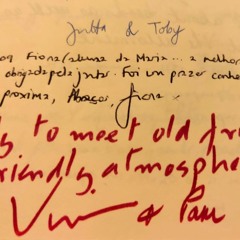 Jutta & Toby
Fiona (aluna da Maria ... a melhor
obrigada pelo jantar. Foi um prazer conhe
proxima, Abraços,
to meet old fri
friendly atmosphe
& Paul